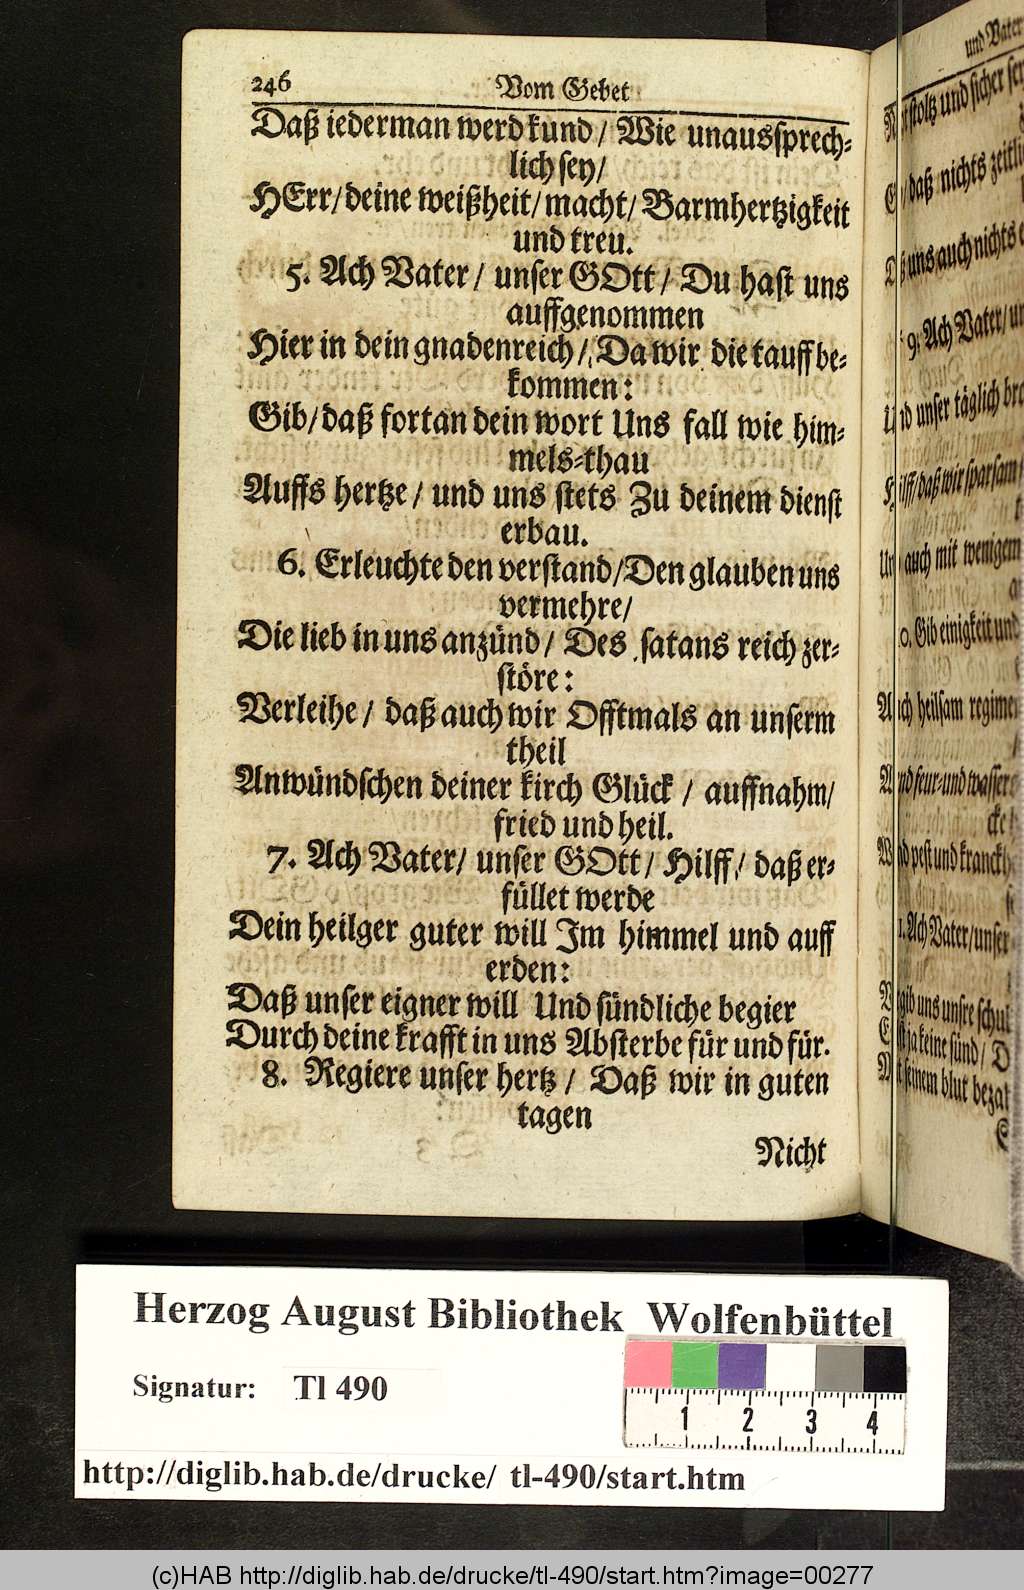 246 Vom Gebet
Daß iederman werd kund / Wie unaussprech-
lich sey/
HErr/ deine weißheit/ macht/ Barmhertzigkeit
und treu.
5. Ach Vater / unser GOtt / Du hast uns
auffgenommen
Hier in dein gnadenreich / Da wir die tauff be-
kommen:
Gib/ daß fortan dein wort Uns fall wie him-
mels-thau
Auffs hertze / und uns stets Zu deinem dienst
erbau.
6. Erleuchte den verstand/Den glauben uns
vermehre/
Die lieb in uns anzünd / Des satans reich zer-
störe:
Verleihe / daß auch wir Offtmals an unserm
theil
Anwündschen deiner kirch Glück / auffnahm/
fried und heil.
7. Ach Vater/ unser GOtt/ Hilff/ daß er-
füllet werde
Dein heilger guter will Im himmel und auff
erden:
Daß unser eigner will Und sündliche begier
Durch deine krafft in uns Absterbe für und für.
8. Regiere unser hertz / Daß wir in guten
tagen
Nicht
und Vater
stoltz und sicher
daß nichts
uns auch nichts
9. Ach Vater/
unser täglich
daß wir sparsam
auch mit wenigem
Gib einigkeit und
heilsam
feur-und
pest und
Ach Vater/unser
uns unsre
keine sünd/
seinem blut
Herzog August Bibliothek Wolfenbüttel
Signatur: Tl 490
1 2 3 4
http://diglib.hab.de/drucke/ tl-490/start.htm
(c)HAB http://diglib.hab.de/drucke/tl-490/start.htm?image=00277